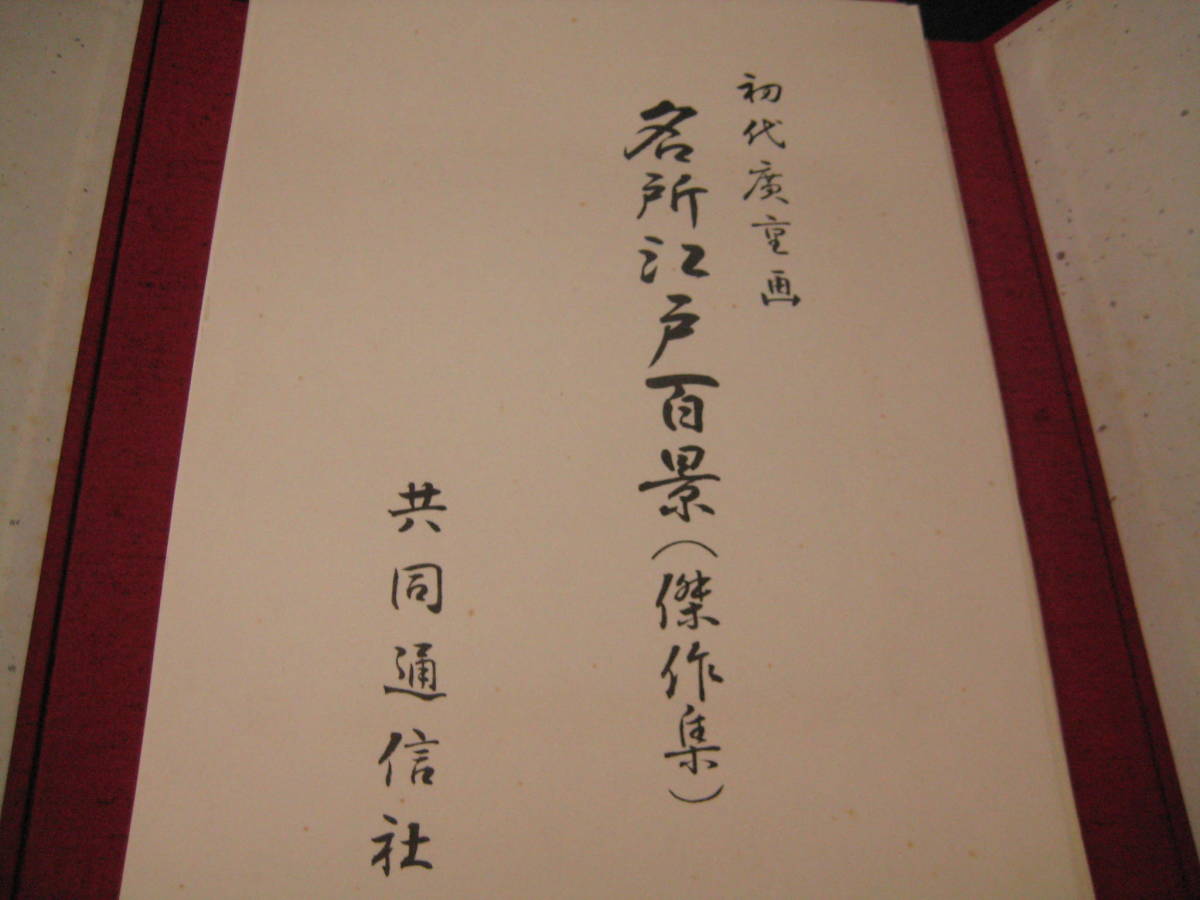 初代廣重画
名所江戸百景（傑作集）
共同通信社